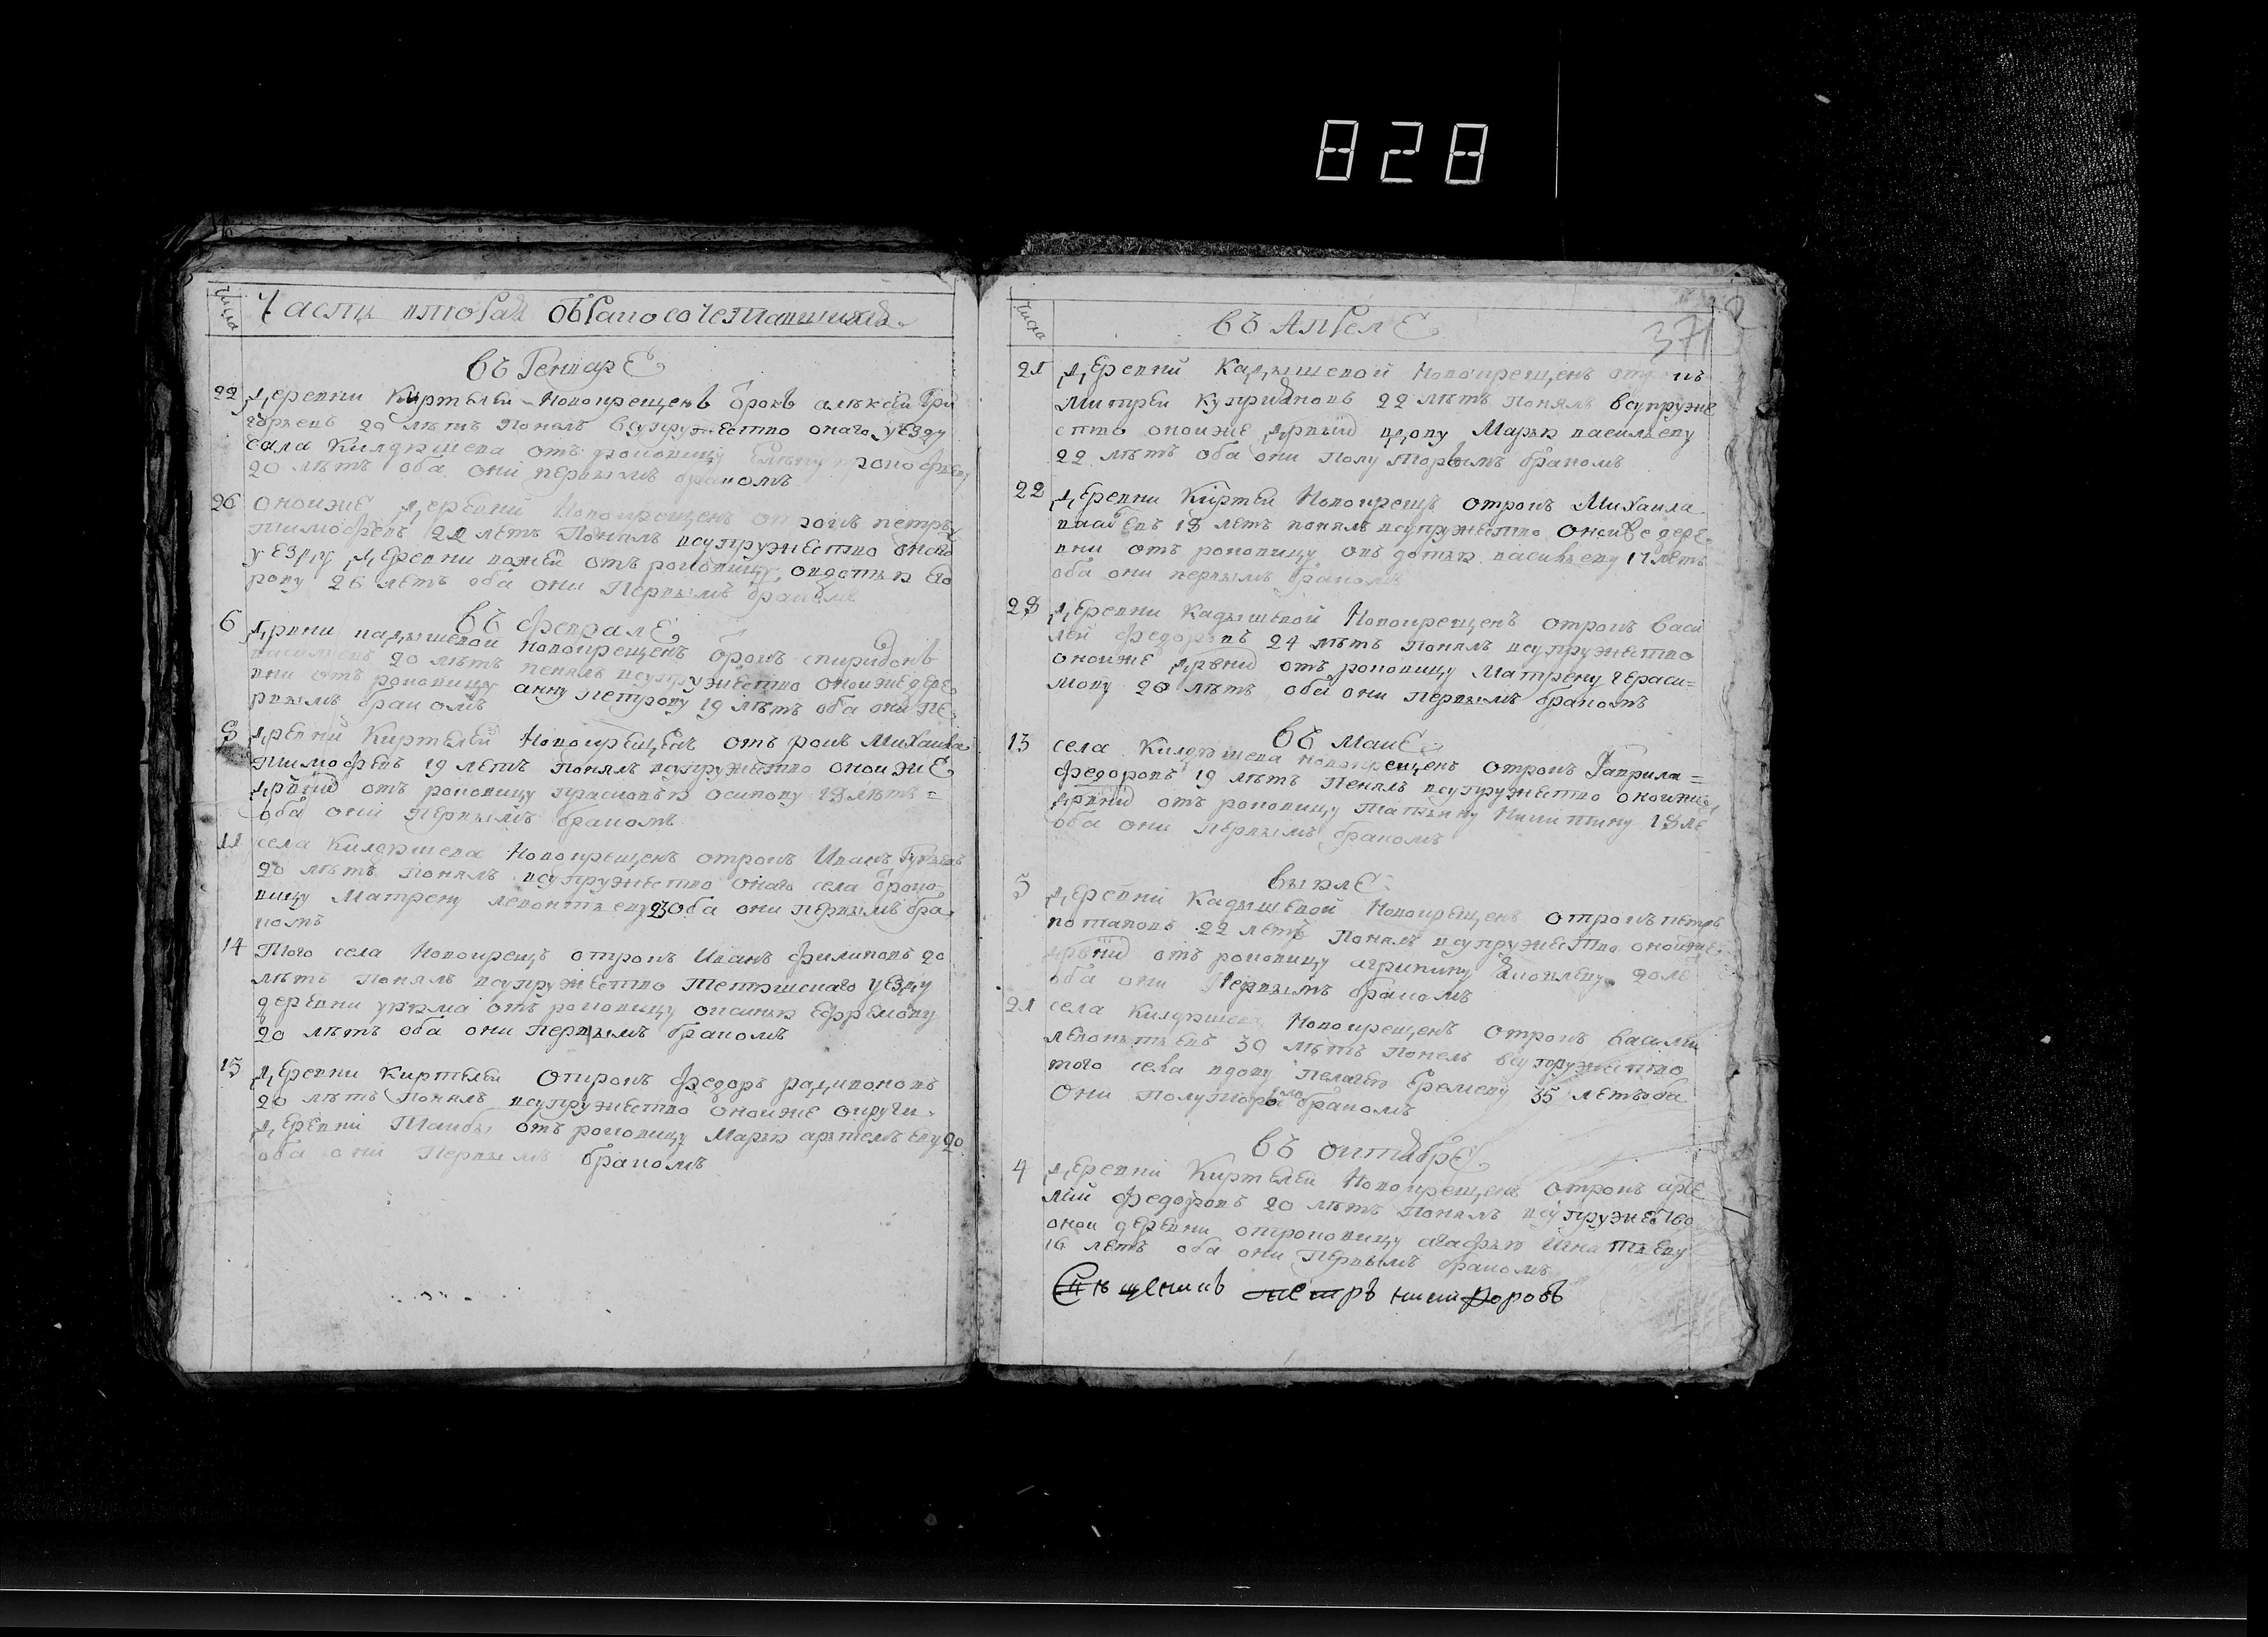 828
371
числа
Часть вторая объ бракосочетавшихся
въ Генваре
22 деревни Киртелей Новокрещенъ отрокъ алексѣй Гри
горьевъ 20 лѣтъ понялъ всупружество онаго уезду
села Килдюшева отъроковицу Елену
20 лѣтъ оба они первымъ бракомъ
26 оноиже деревни Новокрещенъ отрокъ петръ
тимофѣевъ 22 летъ Понялъ всупружество оного
уезду деревни отъроковицу авдотью его
рову 26 лѣтъ оба они Первымъ бракомъ
въ феврале
6 дрвни кадышевой новокрещенъ отрокъ спиридонъ
васильевъ 20 лѣтъ понялъ всупружество оноиже дере
вни отъроковицу анну петрову 19 лѣтъ оба они пе
рвымъ бракомъ
8 древни Киртелей Новокрещенъ отърокъ Михаила
тимофѣевъ 19 летъ понялъ всупружество оноиже
дрвни отъ роковицу прасковью осипову 18 лѣтъ =
оба они первымъ бракомъ
11 села Килдюшева Новокрещенъ отрокъ Иванъ
20 лѣтъ понялъ всупружество онаго села отроко
вицу Матрену леонтьеву 23 оба они первымъ бра
комъ
14 Того села Новокрещъ отрокъ Иванъ филиповъ 20
лѣтъ понялъ всупружество Тетюшскаго уезду
деревни урюма отъроковицу оксинью Ефремову
20 лѣтъ оба они первымъ бракомъ
15 деревни Киртелей Отрокъ федоръ радивоновъ
20 лѣтъ Понялъ всупружество оноиже округи
деревни Танбы отъроковицу Марью артемьеву 20
оба они Первымъ бракомъ
числа
въ Апреле
21 деревни Кадышевой Новокрещенъ отрокъ
Митрей куприяновъ 22 лѣтъ понялъ всупруже
ство оноиже дрвни вдову Марью васильеву
22 лѣтъ оба они полуторымъ бракомъ
22 деревни Киртелей Новокрещъ отрокъ Михаила
18 летъ понялъ всупружество оноиже дере
вни отъ роковицу овдотью васильеву 17 летъ
оба они первымъ бракомъ
28 деревни Кадышевой Новокрещенъ отрокъ васи
лей федоровъ 24 лѣтъ понялъ всупружество
оноиже дрвни отъ роковицу Матрену гераси=
мову 20 лѣтъ оба они первымъ бракомъ
въ Маие
13 села Килдюшева новокрещенъ отрокъ Гаврила =
федоровъ 19 лѣтъ Понялъ всупружество оноиже
дрвни отъ роковицу Татьяну Никитину 18 ле
оба они первымъ бракомъ
выюле
5 деревни Кадышевой Новокрещенъ отрокъ петръ
потаповъ 22 летъ Понялъ всупружество оноиже
дрвни отъ роковицу агрипину яковлеву 20 ле
оба они Первымъ бракомъ
21 села Килдюшева Новокрещенъ отрокъ василей
леонтьевъ 30 лѣтъ Понелъ всупружество
того села вдову пелагею Еремеву 35 летъ оба
Они полуторымъ бракомъ
въ октябре
4 деревни Киртелей Новокрещенъ отрокъ арте
мий федоровъ 20 лѣтъ понялъ всупружество
оной деревни отроковицу агафью Игнатьеву
16 летъ оба они Первымъ бракомъ
Священникъ петръ никифоровъ